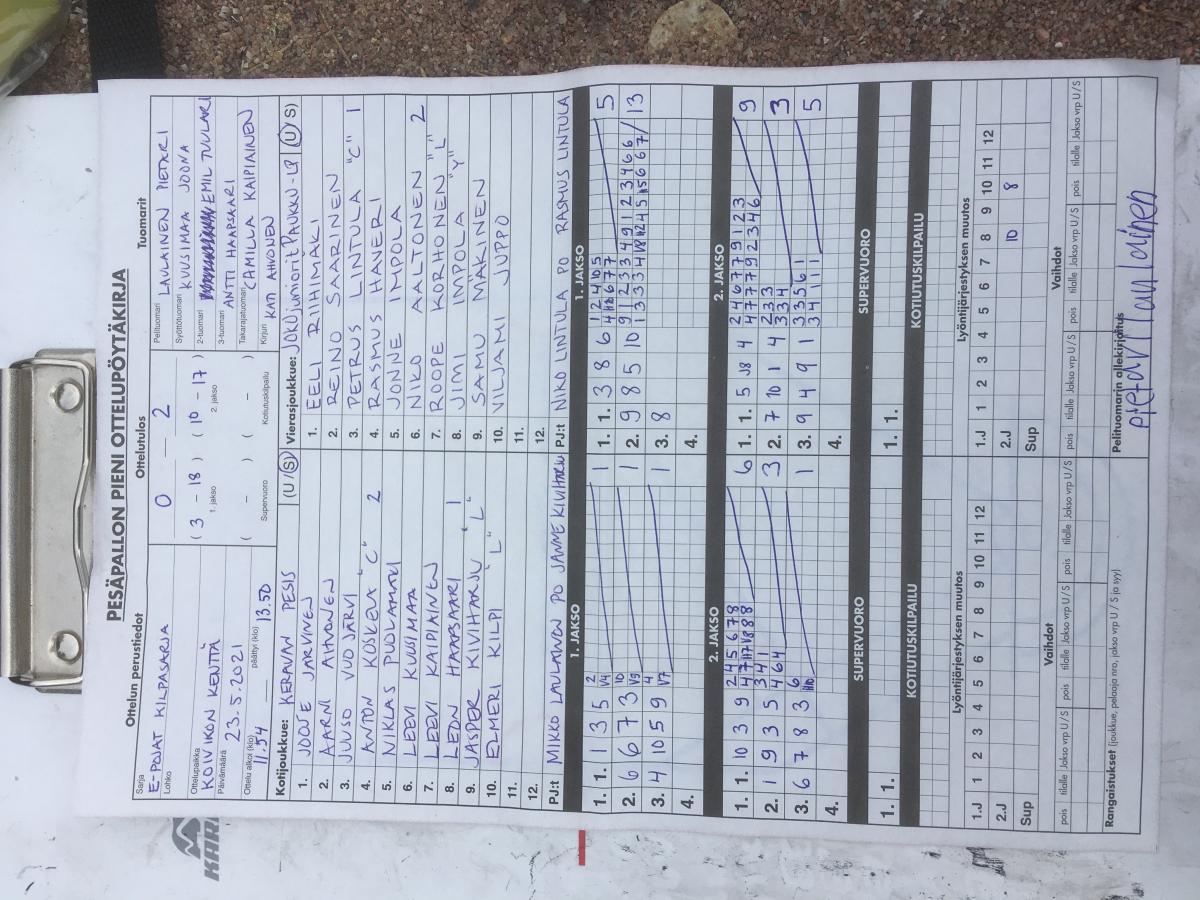 PESÄPALLON PIENI OTTELUPÖYTÄKIRJA
Ottelun perustiedot
Ottelutulos
Tuomarit
Sarja
E-POJAT KILPASARJA
Lohko
Ottelupaikka
KOIVIKON KENTTÄ
Päivämäärä
23.5.2021
Ottelu alkoi (klo)
11.54
päättyi (klo)
13.50
0 — 2
( 3 - 18 ) ( 10 - 17 )
1. jakso
2. jakso
( - ) ( - )
Supervuoro
Kotiutuskilpailu
Pelituomari
LAULAINEN PIETARI
Syöttötuomari
KUUSIMAA JOONA
2-tuomari
EMIL TUULARI
3-tuomari
ANTTI HAAPSAARI
Takarajatuomari
CAMILLA KAIPIAINEN
Kirjuri
KATI AHVONEN
Kotijoukkue: KERAVAN PESIS (U / S)
1. JOOJE JÄRVINEN
2. AARNI AIHVONEN
3. JUUSO VUOJÄRVI
4. ANTON KOSKELA "C" 2
5. NIKLAS PUOLAMÄKI
6. LEEVI KUUSIMAA
7. LEEVI KAIPIAINEN
8. LEON HAAPSAARI 1
9. JASPER KIVIHARJU "L"
10. ELMERI KILPI "L"
11.
12.
PJ:t MIKKO LAULAINEN PO JANNE KIVIHARJU
Vierasjoukkue: JOKOjuniorit PAUKKU-LP (U / S)
1. EELI RIIHIMÄKI
2. REINO SAARINEN
3. PETRUS LINTULA "C" 1
4. RASMUS HAVERI
5. JONNE IMPOLA
6. NIKO AALTONEN 2
7. ROOPE KORHONEN "L"
8. JIMI IMPOLA "Y"
9. SAMU MÄKINEN
10. VILJAMI JUPPO
11.
12.
PJ:t NIKO LINTULA PO RASMUS LINTULA
1. JAKSO
1. 1. 1 3 5 2 V4 1
2. 6 6 7 3 10 V9 1
3. 4 10 5 9 4 V7 1
4.
1. JAKSO
1. 1. 3 8 6 5
2. 9 8 5 10 13
3. 8
4.
2. JAKSO
1. 1. 10 3 9 2 4 5 6 7 8 6
2. 1 9 3 5 3 4 1 4 6 4 3
3. 6 7 8 3 6 1
4.
2. JAKSO
6 1. 1. 5 J8 4 2 4 6 7 7 9 1 2 3 4 7 7 7 9 2 3 4 6 9
2. 7 10 1 4 2 3 3 3 3 4 3
3. 9 4 9 1 3 3 5 6 1 3 4 1 1 1 5
4.
SUPERVUORO
1. 1.
SUPERVUORO
1. 1.
KOTIUTUSKILPAILU
KOTIUTUSKILPAILU
Lyöntijärjestyksen muutos
1.J 1 2 3 4 5 6 7 8 9 10 11 12
2.J
Sup
Lyöntijärjestyksen muutos
1.J 1 2 3 4 5 6 7 8 9 10 11 12
2.J 10 8
Sup
Vaihdot
pois tilalle Jakso vrp U/S pois tilalle Jakso vrp U/S pois tilalle Jakso vrp U/S
Vaihdot
pois tilalle Jakso vrp U/S pois tilalle Jakso vrp U/S pois tilalle Jakso vrp U/S
Rangaistukset (joukkue, pelaaja nro, jakso vrp U / S ja syy)
Pelituomarin allekirjoitus